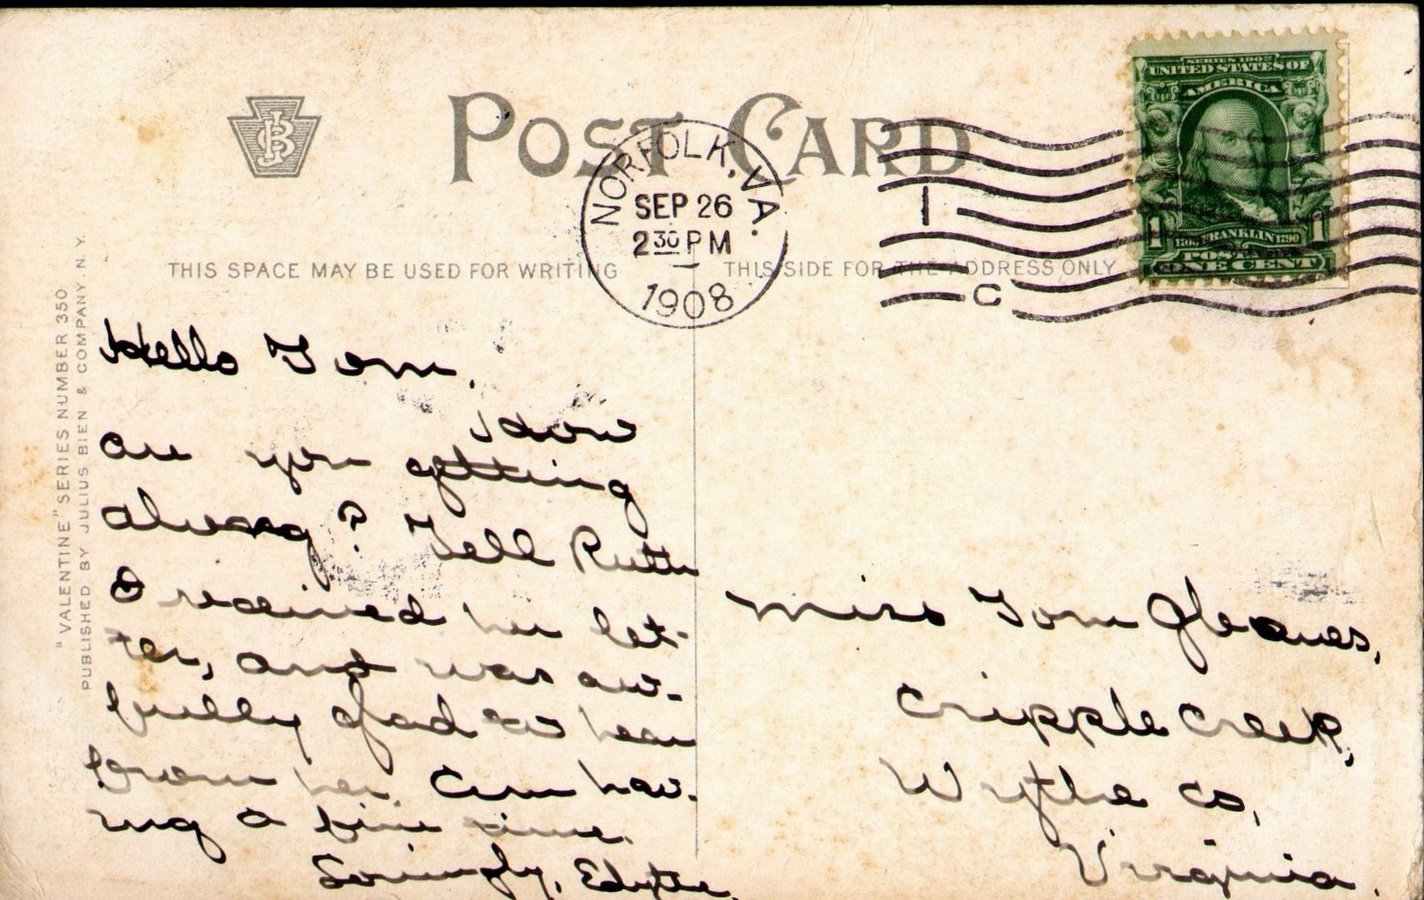 POST CARD
SERIES 1902
UNITED STATES OF
AMERICA
1 1
FRANKLIN 1790
POSTAGE
ONE CENT
NORFOLK, VA.
SEP 26
2 30 PM
1908
1
C
THIS SPACE MAY BE USED FOR WRITING
THIS SIDE FOR THE ADDRESS ONLY
"VALENTINE" SERIES NUMBER 350
PUBLISHED BY JULIUS BIEN & COMPANY, N. Y.
Hello Tom,
How
are you getting
along? Tell Ruth
I received her let-
ter, and was aw-
fully glad to hear
from her. Am hav-
ing a fine time.
Lovingly, Edythe.
Miss Tom Gleaves,
Cripple Creek,
Wythe Co,
Virginia.